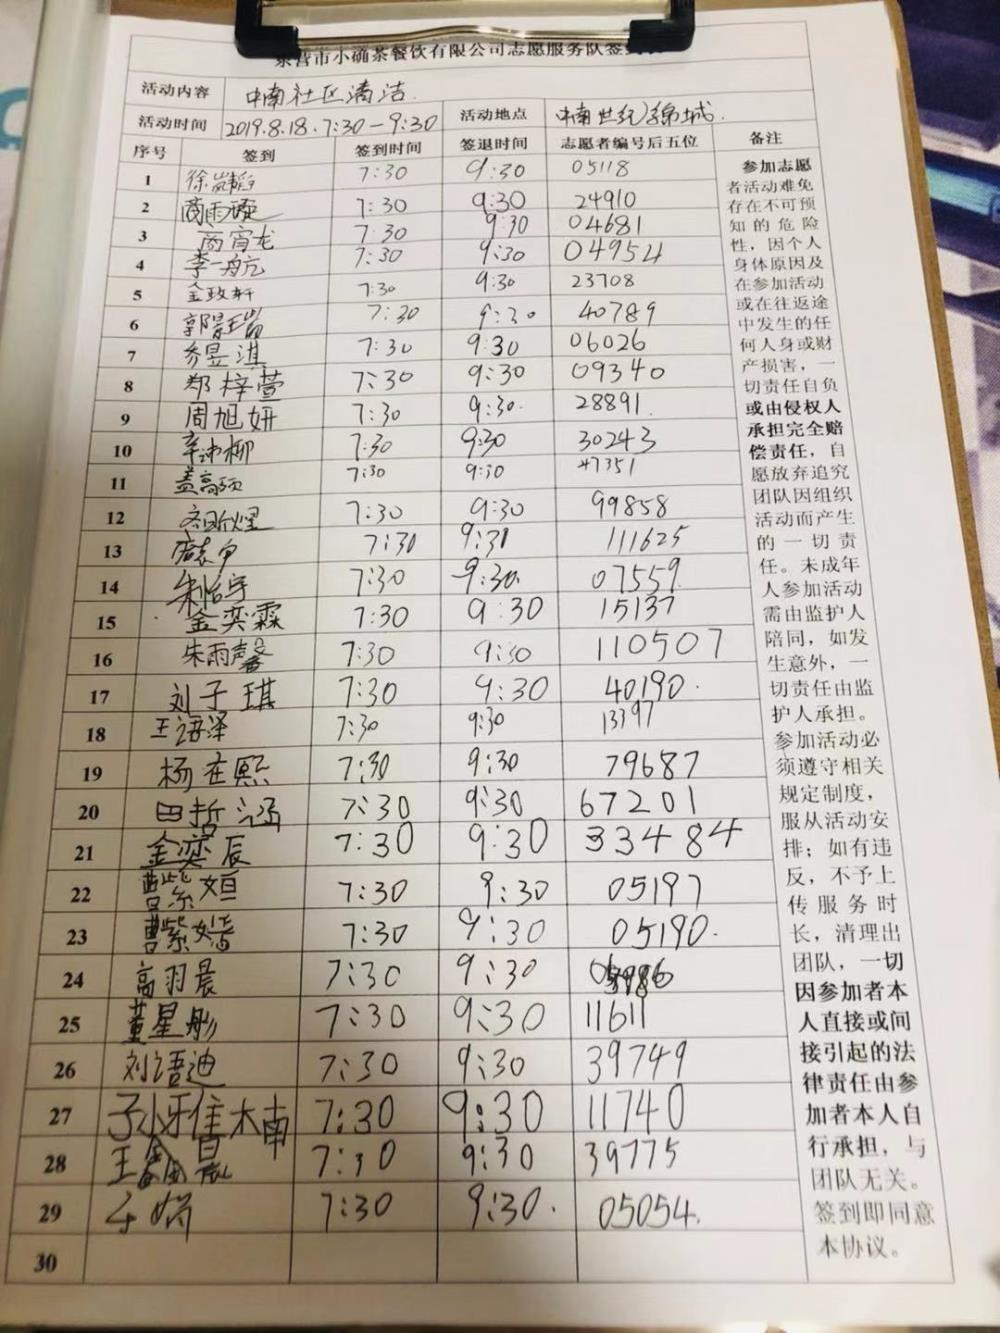 东营市小确茶餐饮有限公司志愿服务队签到表
活动内容 中南社区清洁.
活动时间 2019.8.18.7:30-9:30 活动地点 中南世纪锦城.
序号 签到 签到时间 签退时间 志愿者编号后五位 备注
1 7:30 9:30 05118
2 商雨璇 7:30 9:30 24910
3 商宵龙 7:30 9:30 04681
4 李一航 7:30 9:30 04954
5 金政轩 7:30 9:30 23708
6 7:30 9:30 40789
7 乔昱淇 7:30 9:30 06026
8 郑梓萱 7:30 9:30 09340
9 周旭妍 7:30 9:30. 28891.
10 7:30 9:30 30243
11 盖高硕 7:30 9:30 47351
12 7:30 9:30 99858
13 7:30 9:30 111625
14 朱怡宇 7:30 9:30. 07559.
15 金奕霖 7:30 9:30 15137
16 朱雨馨 7:30 9:30 110507
17 刘子琪 7:30 9:30 40190.
18 王语泽 7:30 9:30 13397
19 杨在熙 7:30 9:30 79687
20 田哲涵 7:30 9:30 67201
21 金奕辰 7:30 9:30 33484
22 曹紫姮 7:30 9:30 05197
23 曹紫婧 7:30 9:30 05190.
24 高羽晨 7:30 9:30
25 董星彤 7:30 9:30 11611
26 刘语迪 7:30 9:30 39749
27 孙雅楠 7:30 9:30 11740
28 王鑫晨 7:30 9:30 39775
29 7:30 9:30. 05054.
30
参加志愿
者活动难免
存在不可预
知的危险
性，因个人
身体原因及
在参加活动
或在往返途
中发生的任
何人身或财
产损害，一
切责任自负
或由侵权人
承担完全赔
偿责任，自
愿放弃追究
团队因组织
活动而产生
的一切责
任。未成年
人参加活动
需由监护人
陪同，如发
生意外，一
切责任由监
护人承担。
参加活动必
须遵守相关
规定制度，
服从活动安
排；如有违
反，不予上
传服务时
长，清理出
团队，一切
因参加者本
人直接或间
接引起的法
律责任由参
加者本人自
行承担，与
团队无关。
签到即同意
本协议。